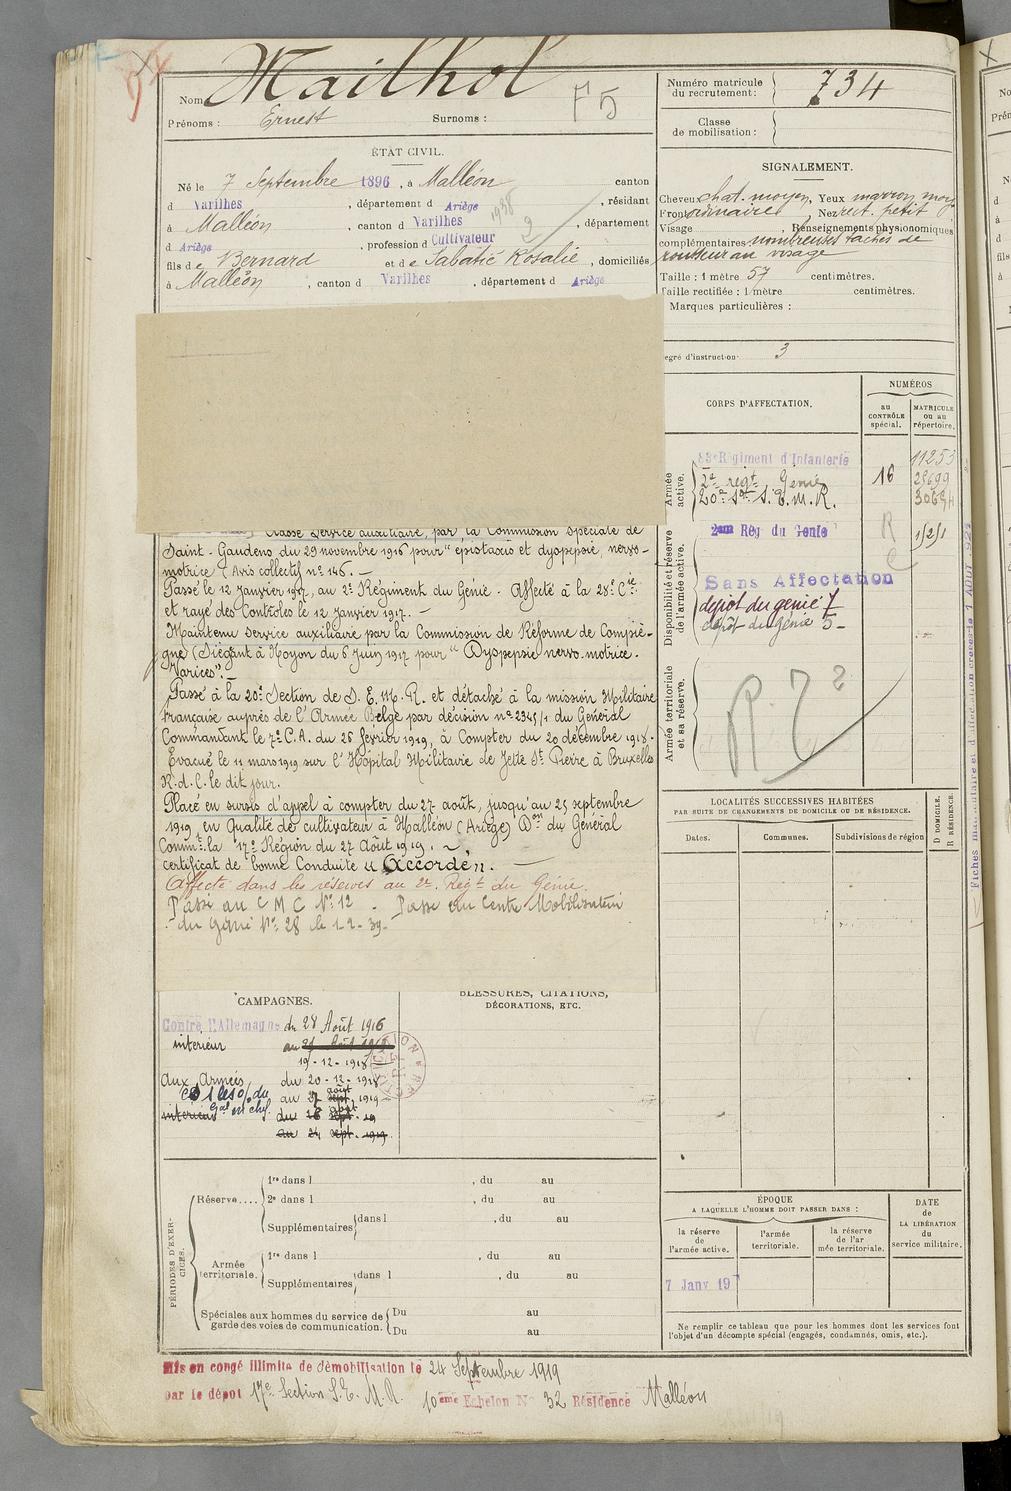 Nom Mailhol
F5
Prénoms : Ernest Surnoms :
Numéro matricule du recrutement : 734
Classe de mobilisation :
ÉTAT CIVIL.
Né le 7 Septembre 1896, à Malléon canton
d Varilhes, département d Ariège, résidant
à Malléon, canton d Varilhes, département
d Ariège, profession d Cultivateur
fils de Bernard et de Sabatié Rosalie, domiciliés
à Malléon, canton d Varilhes, département d Ariège
1938
2
SIGNALEMENT.
Cheveux chat. moyen, Yeux marron moy.
Front ordinaire, Nez rect. petit
Visage , Renseignements physionomiques
complémentaires nombreuses taches de
rousseur au visage
Taille : 1 mètre 57 centimètres.
Taille rectifiée : 1 mètre centimètres.
Marques particulières :
egré d'instruction. 3
Classé Service auxiliaire, par la Commission Spéciale de
Saint-Gaudens du 29 novembre 1916 pour "épistaxis et dyspepsie nervo-
motrice (Avis collectif n° 146. —
Passé le 12 Janvier 1917, au 2e Régiment du Génie. Affecté à la 28e Cie
et rayé des Contrôles le 12 Janvier 1917. —
Maintenu service auxiliaire par la Commission de Réforme de Compiè-
gne (Siégeant à Noyon du 6 Juin 1917 pour "Dyspepsie nervo-motrice.
Varices". —
Passé à la 20e Section de S. E. M. R. et détaché à la mission Militaire
française auprès de l'Armée Belge par décision n° 2345/1 du Général
Commandant le 7e C.A. du 26 février 1919, à Compter du 20 décembre 1918.
Évacué le 11 mars 1919 sur l'Hôpital Militaire de Jette St Pierre à Bruxelles
R.d.C. le dit jour.
Placé en sursis d'appel à compter du 27 août, jusqu'au 25 septembre
1919, en Qualité de cultivateur à Malléon (Ariège) Don du Général
Commt la 17e Région du 27 Août 1919. —
Certificat de bonne Conduite "Accordé". —
Affecté dans les réserves au 2e Régt du Génie.
Passé au C M C N° 12 - Passé au Centre Mobilisateur
du Génie N° 28 le 1-2-39-
CORPS D'AFFECTATION.
NUMÉROS
au CONTRÔLE spécial.
MATRICULE ou au répertoire.
Armée active.
83e Régiment d'Infanterie 11253
2e régt Génie 16 25699
20e Son S.E.M.R.
Disponibilité et réserve de l'armée active.
2eme Rég du Génie
Sans Affectation
dépôt du génie 7
dépôt du Génie 5-
R
C
Armée territoriale et sa réserve.
Fiches
LOCALITÉS SUCCESSIVES HABITÉES
PAR SUITE DE CHANGEMENTS DE DOMICILE OU DE RÉSIDENCE.
Dates. Communes. Subdivisions de région
D. DOMICILE.
R. RÉSIDENCE.
CAMPAGNES.
Contre l'Allemagne du 28 Août 1916
intérieur au
19-12-1918
aux Armées du 20-12-1918
au 27 août 1919
BLESSURES, CITATIONS,
DÉCORATIONS, ETC.
PÉRIODES D'EXERCICES.
Réserve.... 1re dans l , du au
2e dans l , du au
Supplémentaires dans l , du au
Armée territoriale. 1re dans l , du au
Supplémentaires dans l , du au
Spéciales aux hommes du service de garde des voies de communication. Du au
Du au
ÉPOQUE
A LAQUELLE L'HOMME DOIT PASSER DANS :
la réserve de l'armée active.
l'armée territoriale.
la réserve de l'armée territoriale.
DATE de LA LIBÉRATION du service militaire.
7 Janv 19
Ne remplir ce tableau que pour les hommes dont les services font
l'objet d'un décompte spécial (engagés, condamnés, omis, etc.).
Mis en congé illimité de démobilisation le 24 Septembre 1919
par le dépôt 17e Section S.E.M.R. 10ème Echelon N° 32 Résidence Malléon